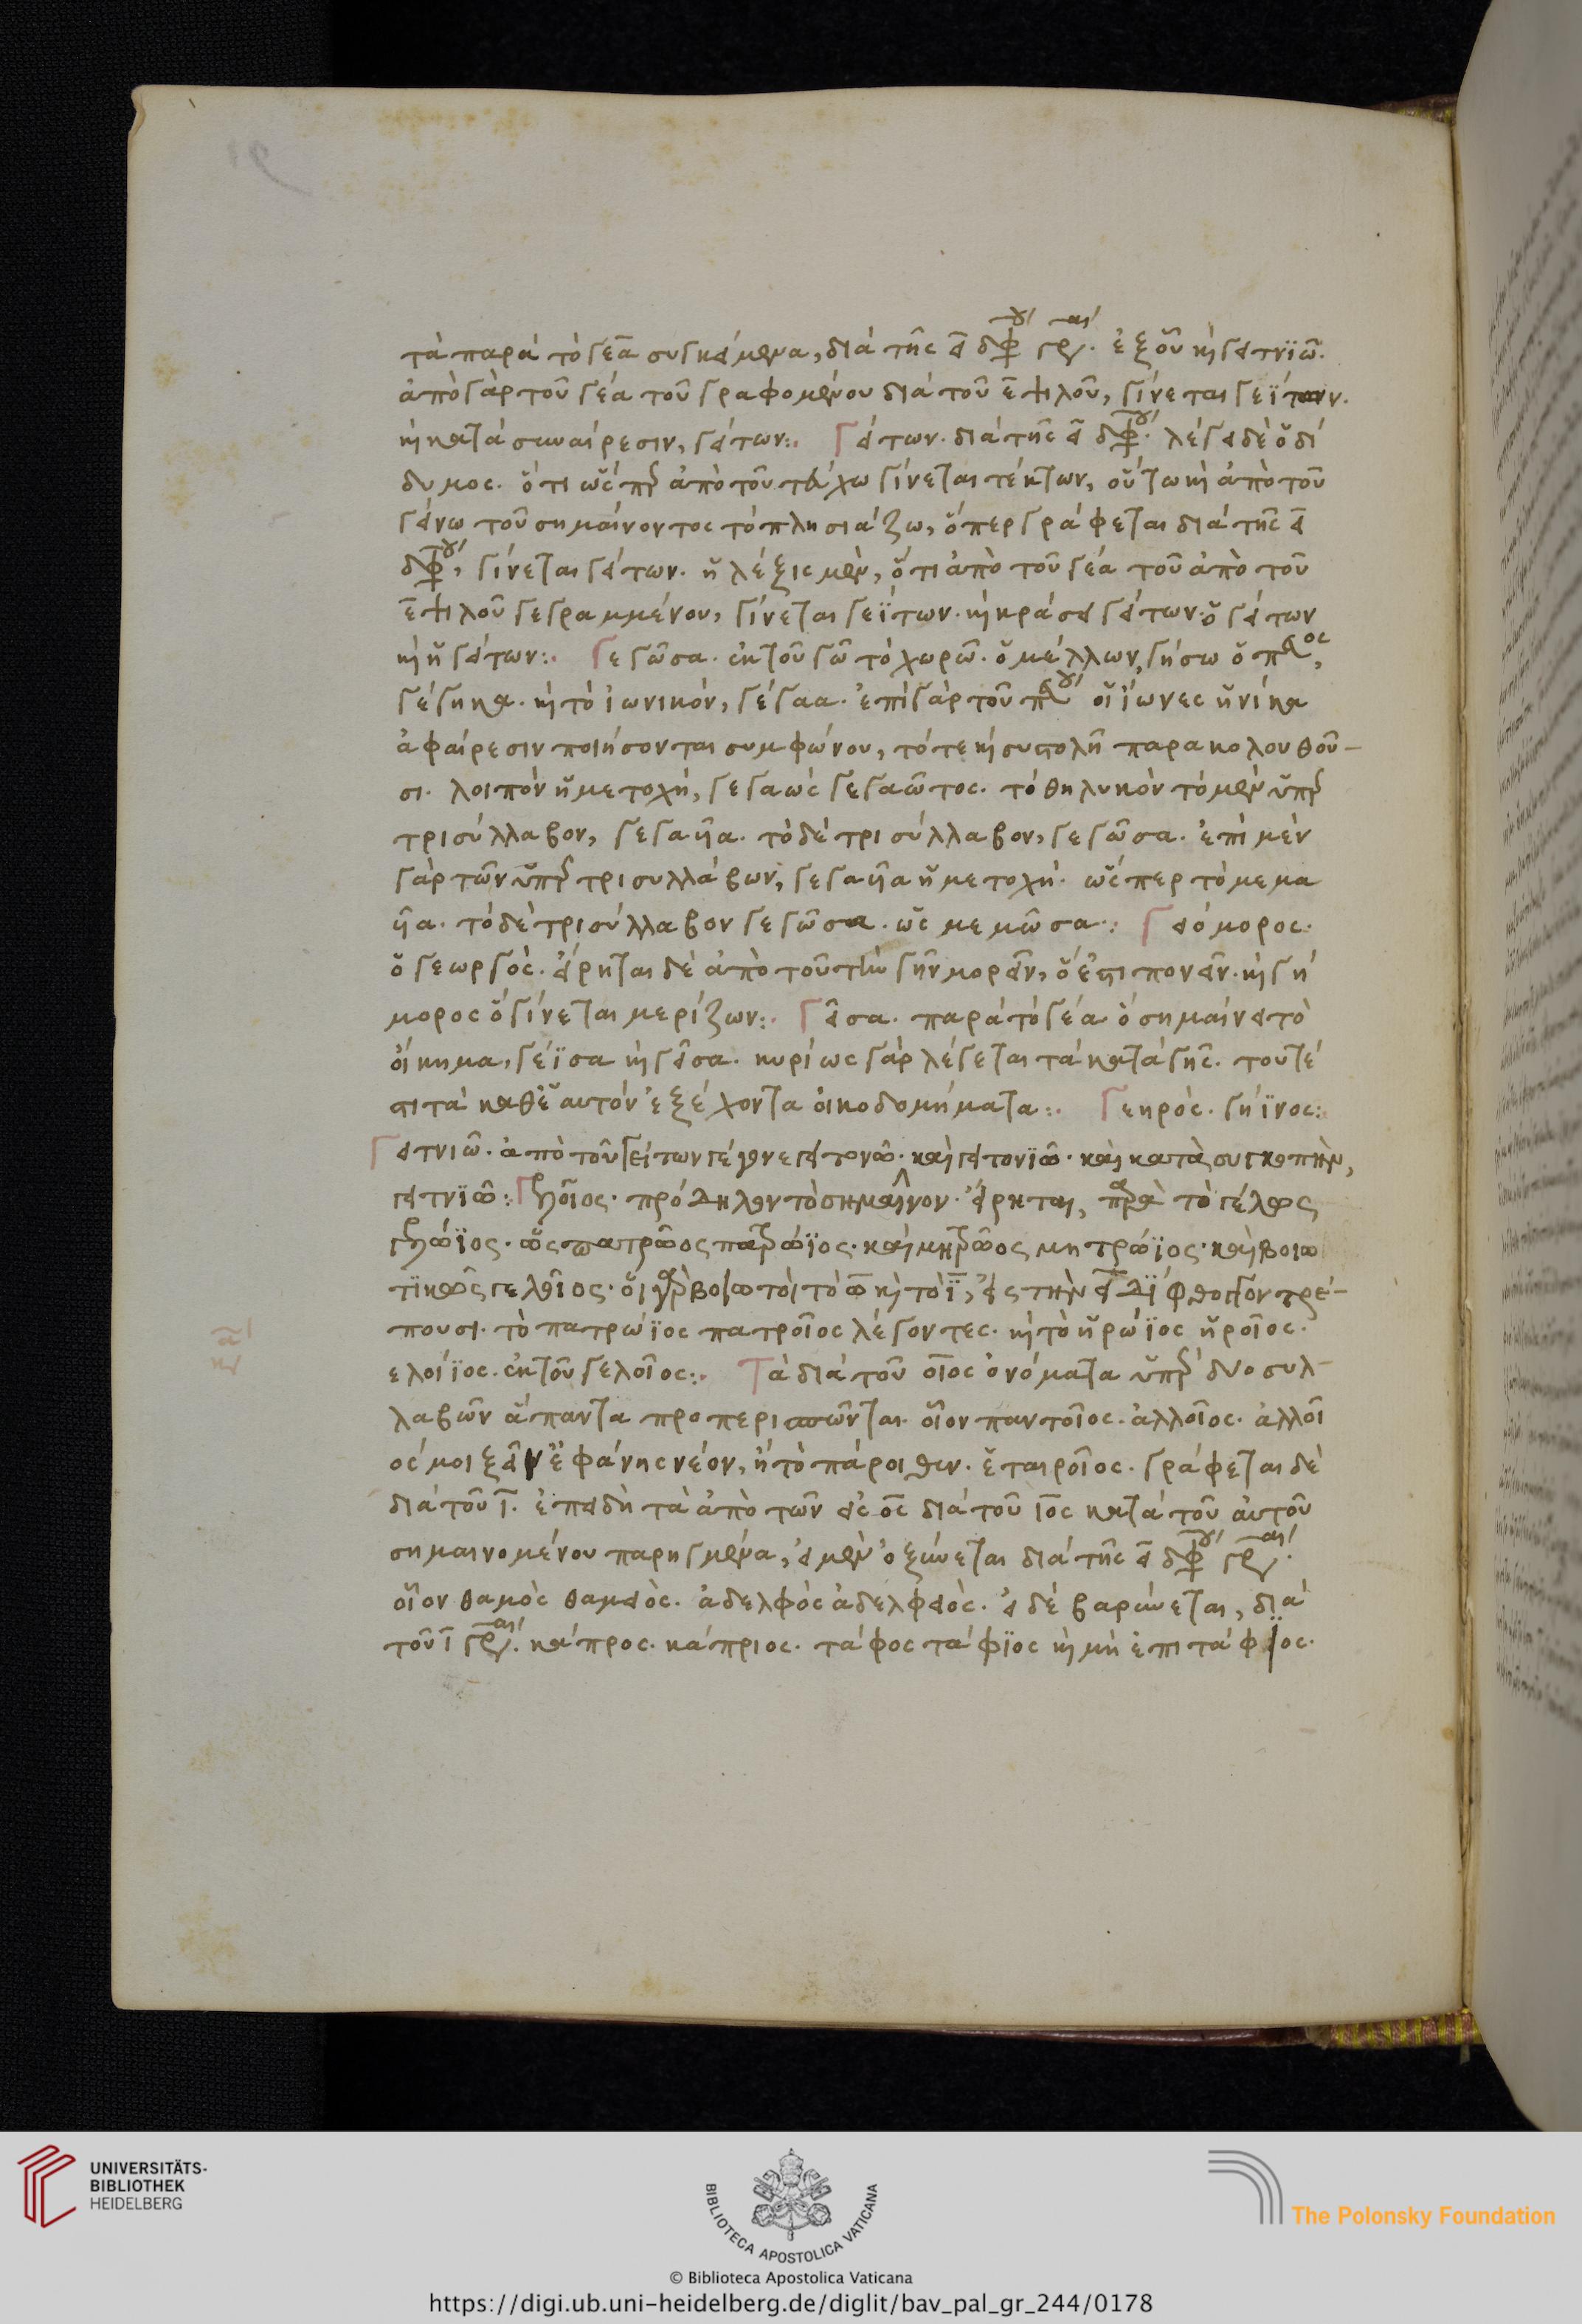 τὰ παρὰ τὸ γεᾶ συγκείμενα, διὰ τῆς ει διφ γρ. ἐξ οὗ κὶ γειτνϊῶ.
ἀπὸ γὰρ τοῦ γέα τοῦ γραφομένου διὰ τοῦ ε ψιλοῦ, γίνεται γεΐτων.
κὶ κατὰ συναίρεσιν, γείτων:. Γείτων. διὰ τῆς ει διφ. λέγει δὲ ὁ δί
δυμος. ὅτι ὥσπερ ἀπὸ τοῦ τεύχω γίνεται τέκτων, οὕτω κὶ ἀπὸ τοῦ
γείνω τοῦ σημαίνοντος τὸ πλησιάζω, ὅπερ γράφεται διὰ τῆς ει
διφ, γίνεται γείτων. ἢ λέξις μὲν, ὅτι ἀπὸ τοῦ γέα τοῦ ἀπὸ τοῦ
ε ψιλοῦ γεγραμμένου, γίνεται γεΐτων. κὶ κράσει γείτων. ὁ γείτων
κὶ ἡ γείτων:. Γεγῶσα. ἐκ τοῦ γῶ τὸ χωρῶ. ὁ μέλλων, γήσω ὁ π
γέγηκα. κὶ τὸ ἰωνικὸν, γέγαα. ἐπὶ γὰρ τοῦ π οἱ ἴωνες ἡνίκα
ἀφαίρεσιν ποιήσονται συμφώνου, τότε κὶ συστολῆ παρακολουθοῦ-
σι. λοιπὸν ἡ μετοχὴ, γεγαὼς γεγαῶτος. τὸ θηλυκὸν τὸ μὲν ὑπὲρ
τρισύλλαβον, γεγαῆα. τὸ δὲ τρισύλλαβον, γεγῶσα. ἐπὶ μὲν
γὰρ τῶν ὑπὲρ τρισυλλάβων, γεγαῆα ἡ μετοχή. ὥσπερ τὸ μεμα
ῆα. τὸ δὲ τρισύλλαβον γεγῶσα. ὡς μεμῶσα:. Γειόμορος.
ὁ γεωργός. εἴρηται δὲ ἀπὸ τοῦ τὴν γῆν μορεῖν, ὅ ἐστι πονεῖν. κὶ γή
μορος ὁ γίνεται μερίζων:. Γεῖσα. παρὰ τὸ γέα. ὃ σημαίνει τὸ
οἴκημα, γέϊσα κὶ γεῖσα. κυρίως γὰρ λέγεται τὰ κατὰ γῆς. τουτέ
στι τὰ καθ' ἑαυτὸν ἐξέχοντα οἰκοδομήματα:. Γεηρός. γήϊνος:.
Γειτνιῶ. ἀπὸ τοῦ γείτων γέγονε γειτονῶ. καὶ γειτονϊῶ. καὶ κατὰ συγκοπὴν,
γειτνϊῶ:. Γελοῖος. πρόδηλον τὸ σημαῖνον. εἴρηται, παρὰ τὸ γέλως
γελώϊος. ὡς πατρῶος πατρώϊος. καὶ μητρῶος μητρώϊος. καὶ βοιω
τϊκῶς γελοῖος. οἱ γὰρ βοιωτοὶ τὸ ω κὶ τὸ ϊ, εἰς τὴν οι δίφθογγον τρέ-
πουσι. τὸ πατρώϊος πατροῖος λέγοντες. κὶ τὸ ἡρώϊος ἡροῖος.
ελοίϊος. ἐκ τοῦ γελοῖος:. Τὰ διὰ τοῦ οιος ὀνόματα ὑπὲρ δύο συλ-
λαβῶν ἅπαντα προπερισπῶνται. οἷον παντοῖος. ἀλλοῖος. ἀλλοῖ
ός μοι ξεῖνε φάνης νέον, ἢ τὸ πάροιθεν. ἑταιροῖος. γράφεται δὲ
διὰ τοῦ ι. ἐπειδὴ τὰ ἀπὸ τῶν εἰς ος διὰ τοῦ ιος κατὰ τοῦ αὐτοῦ
σημαινομένου παρηγμένα, εἰ μὲν ὀξύνεται διὰ τῆς ει διφ γρ.
οἷον θαμὸς θαμειός. ἀδελφὸς ἀδελφειός. εἰ δὲ βαρύνεται, διὰ
τοῦ ι γρ. κάπρος. κάπριος. τάφος τάφϊος κὶ μὴ ἐπιτάφιος.
UNIVERSITÄTS-
BIBLIOTHEK
HEIDELBERG
BIBLIOTECA APOSTOLICA VATICANA
The Polonsky Foundation
© Biblioteca Apostolica Vaticana
https://digi.ub.uni-heidelberg.de/diglit/bav_pal_gr_244/0178